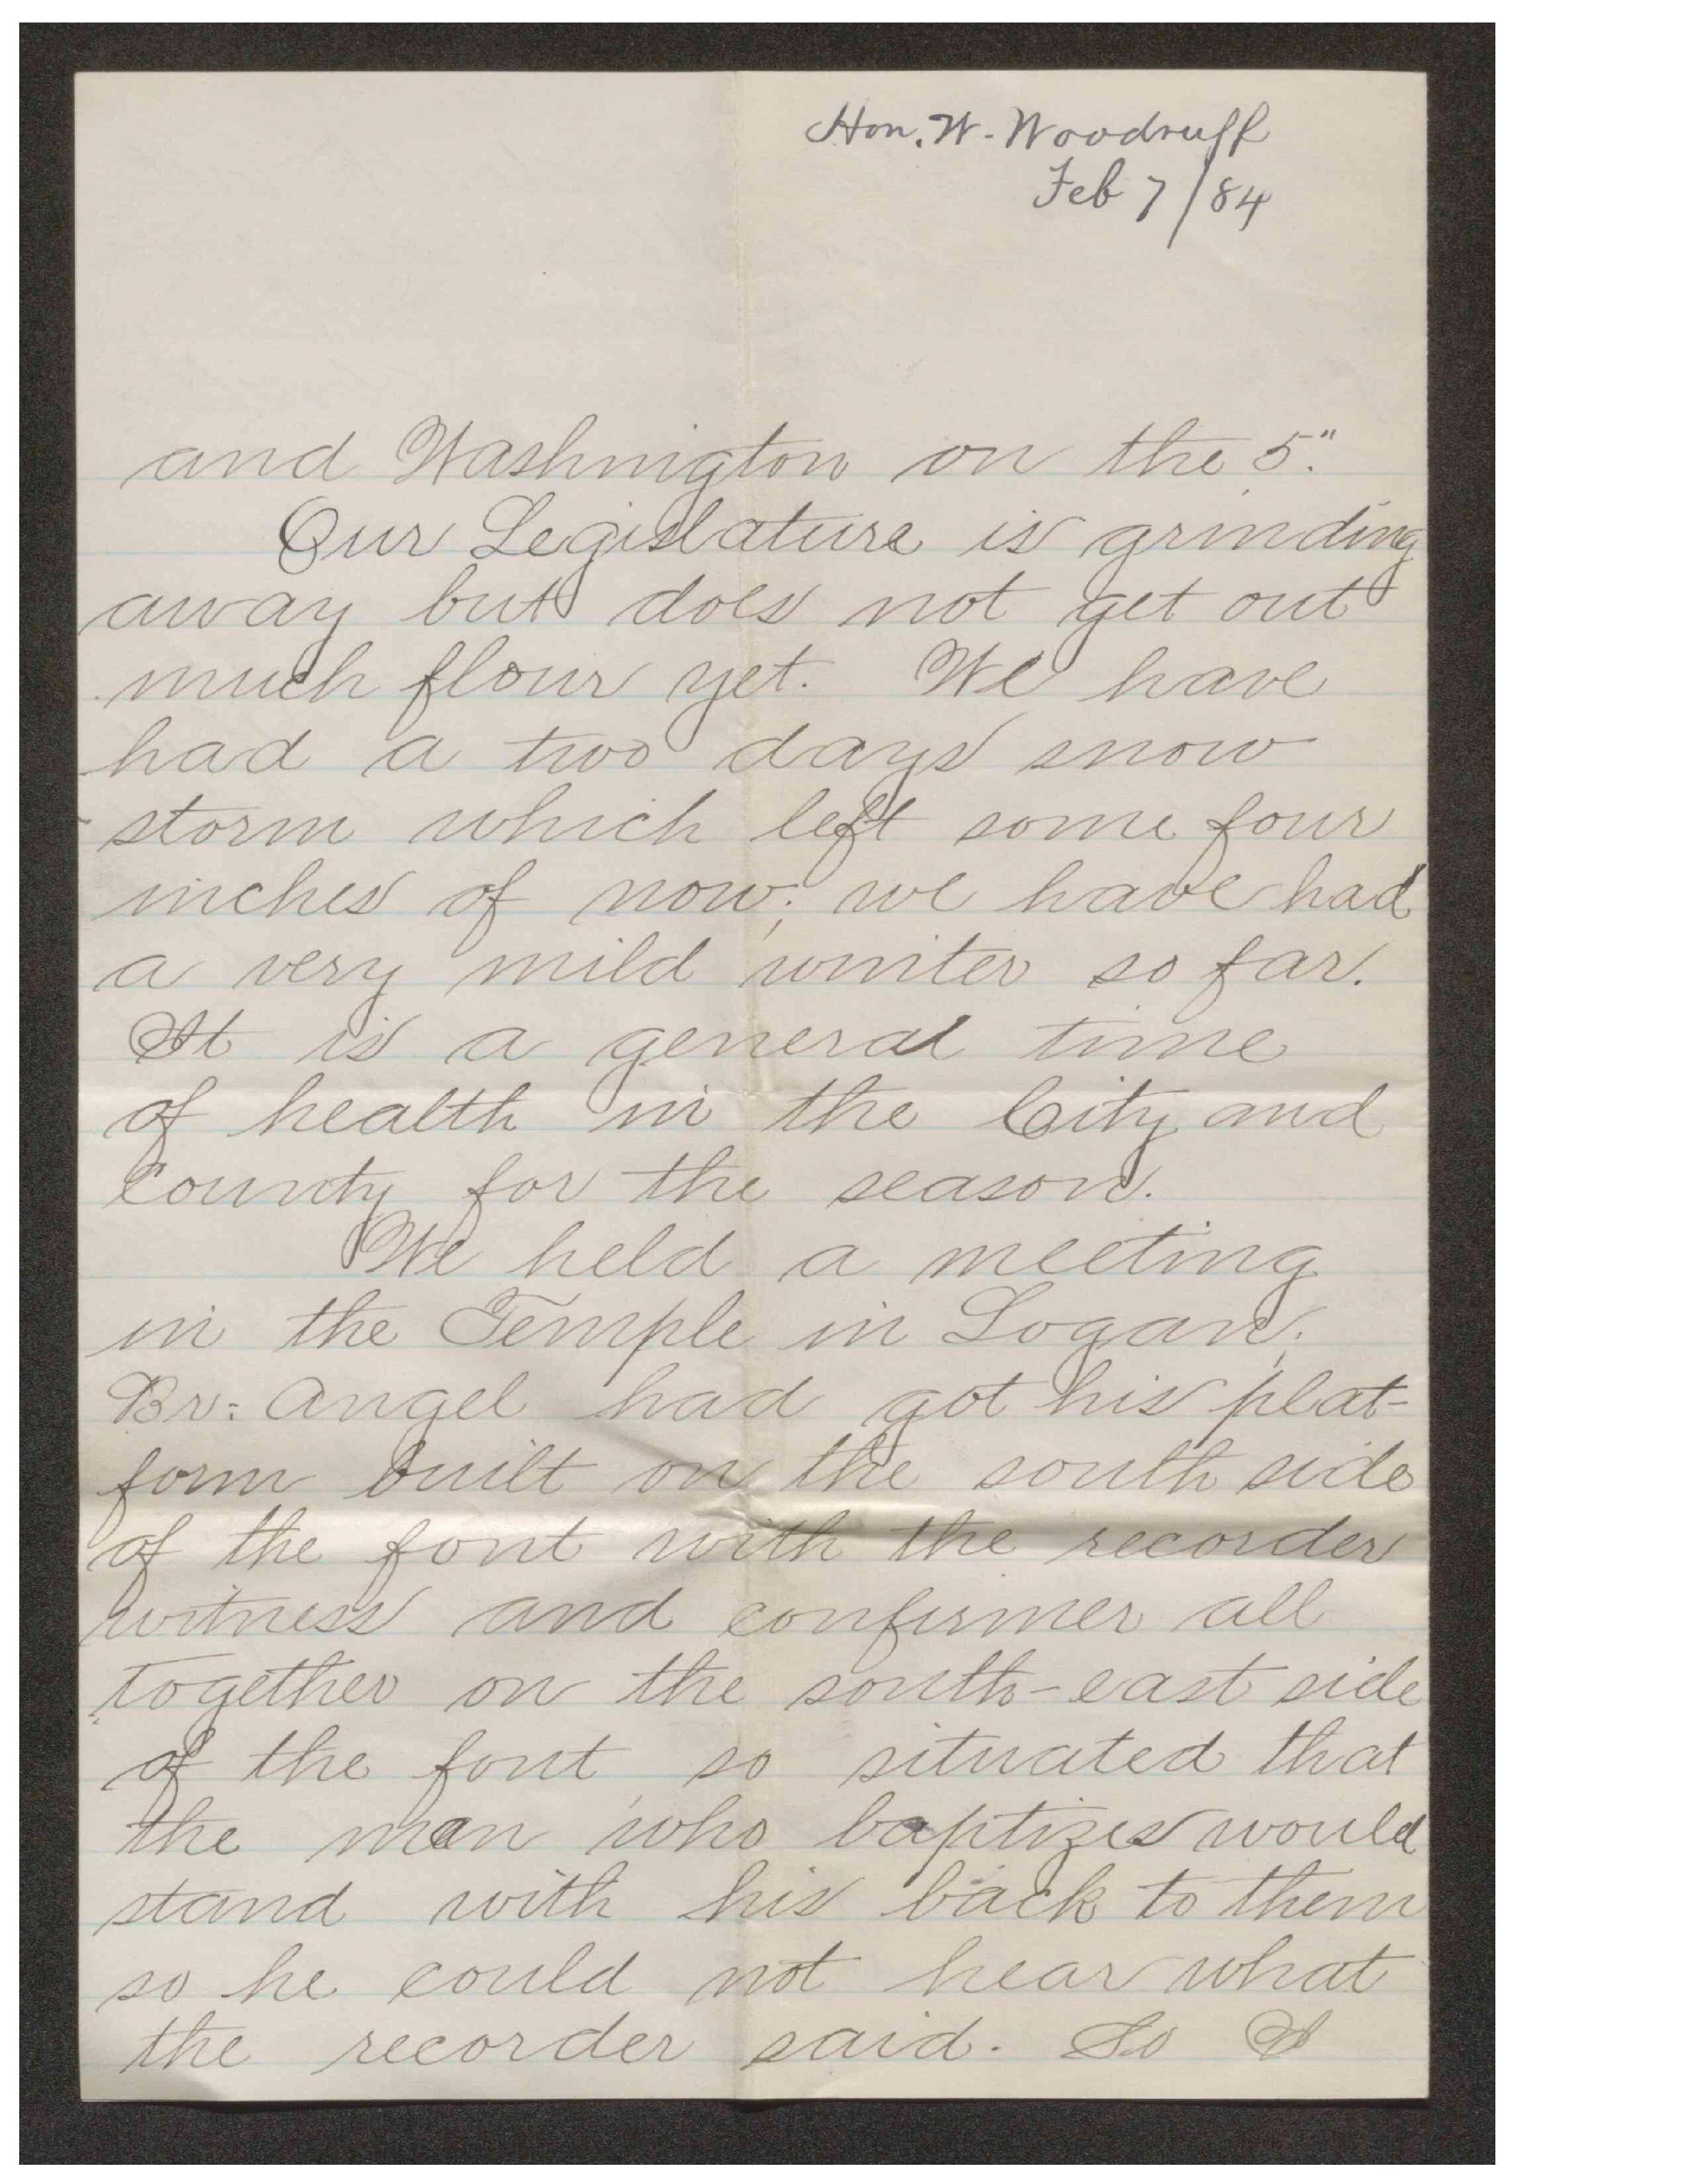 Hon. W. Woodruff
Feb 7/84
and Washington on the 5."
Our Legislature is grinding
away but does not get out
much flour yet. We have
had a two days snow
storm which left some four
inches of now; we have had
a very mild winter so far.
It is a general time
of health in the City and
County for the season.
We held a meeting
in the Temple in Logan;
Br: Angel had got his plat-
form built on the south side
of the font with the recorder
witness and confirmer all
together on the south-east side
of the font so situated that
the man who baptizes would
stand with his back to them
so he could not hear what
the recorder said. So I